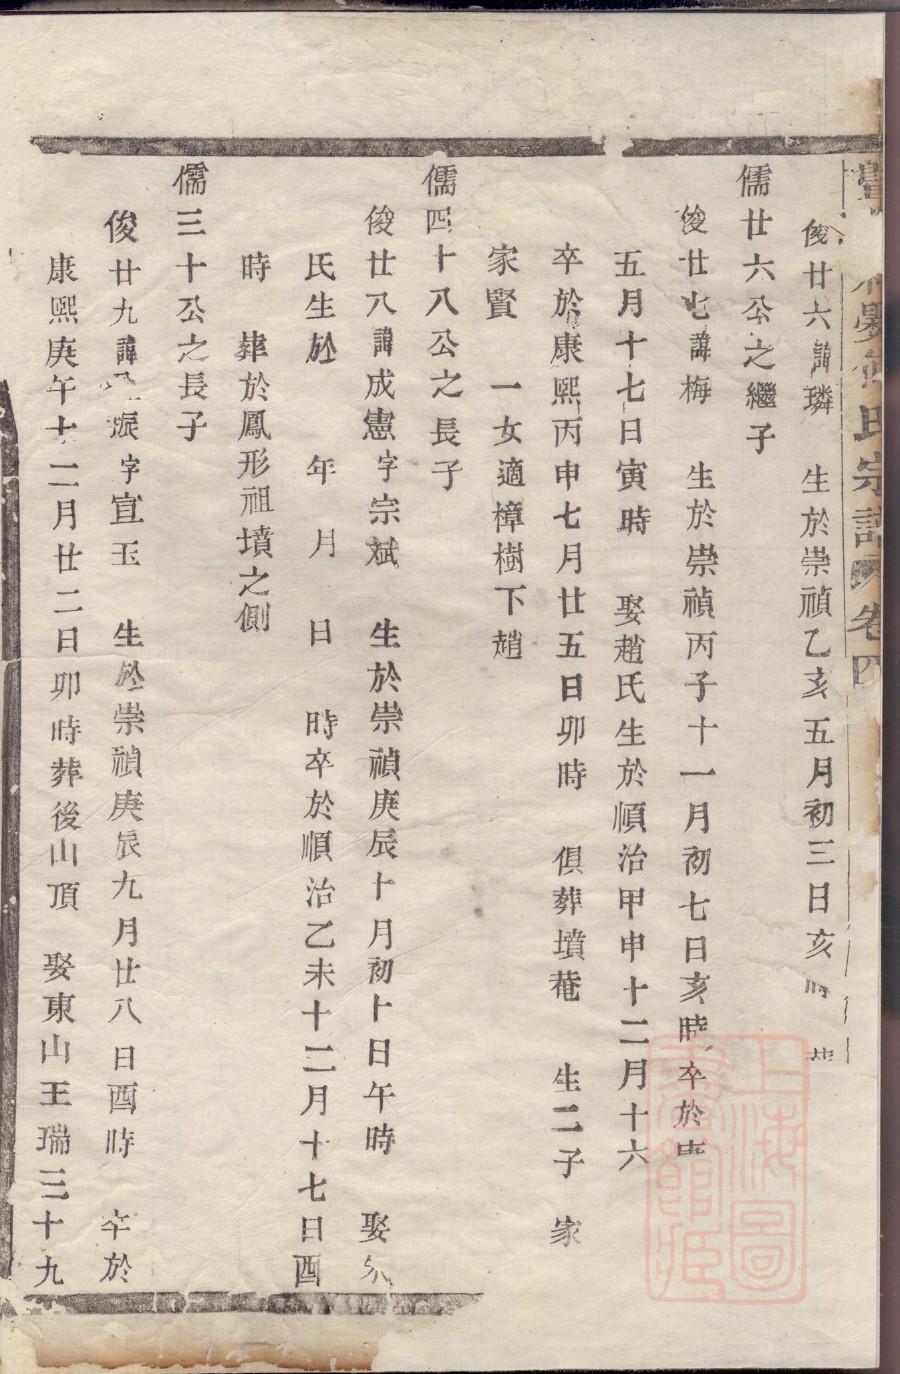 氏宗譜 卷四
俊廿六諱璘 生於崇禎乙亥五月初三日亥時
儒廿六公之繼子
俊廿七諱梅 生於崇禎丙子十一月初七日亥時 卒於
五月十七日寅時 娶趙氏生於順治甲申十二月十六
卒於康熙丙申七月廿五日卯時 俱葬墳菴 生二子 家
家賢 一女適樟樹下趙
儒四十八公之長子
俊廿八諱成憲字宗斌 生於崇禎庚辰十月初十日午時 娶
氏生於 年 月 日 時卒於順治乙未十二月十七日酉
時 葬於鳳形祖墳之側
儒三十公之長子
俊廿九諱振字宣玉 生於崇禎庚辰九月廿八日酉時 卒於
康熙庚午十二月廿二日卯時葬後山頂 娶東山王瑞三十九
上海圖書館藏